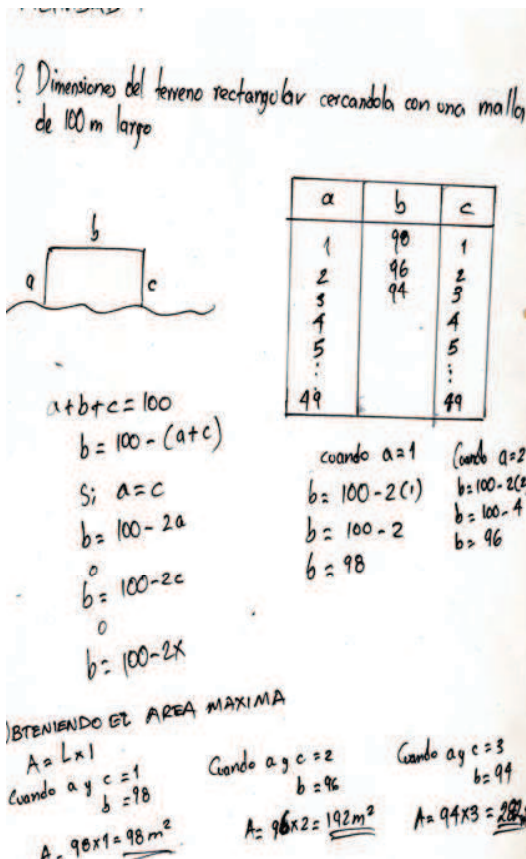 ? Dimensiones del terreno rectangular cercandola con una malla
de 100 m largo
b
a c
a b c
1 98 1
2 96 2
3 94 3
4 4
5 5
⋮ ⋮
49 49
a+b+c = 100
b = 100 - (a+c)
Si a=c
b= 100-2a
o
b= 100-2c
o
b= 100-2x
cuando a=1
b= 100-2(1)
b= 100-2
b= 98
Cuando a=2
b=100-2(2
b=100-4
b= 96
BTENIENDO EL AREA MAXIMA
A= L x l
Cuando a y c =1
b =98
A= 98x1= 98 m²
Cuando a y c =2
b =96
A= 96x2= 192m²
Cuando a y c =3
b= 94
A= 94x3 = 282